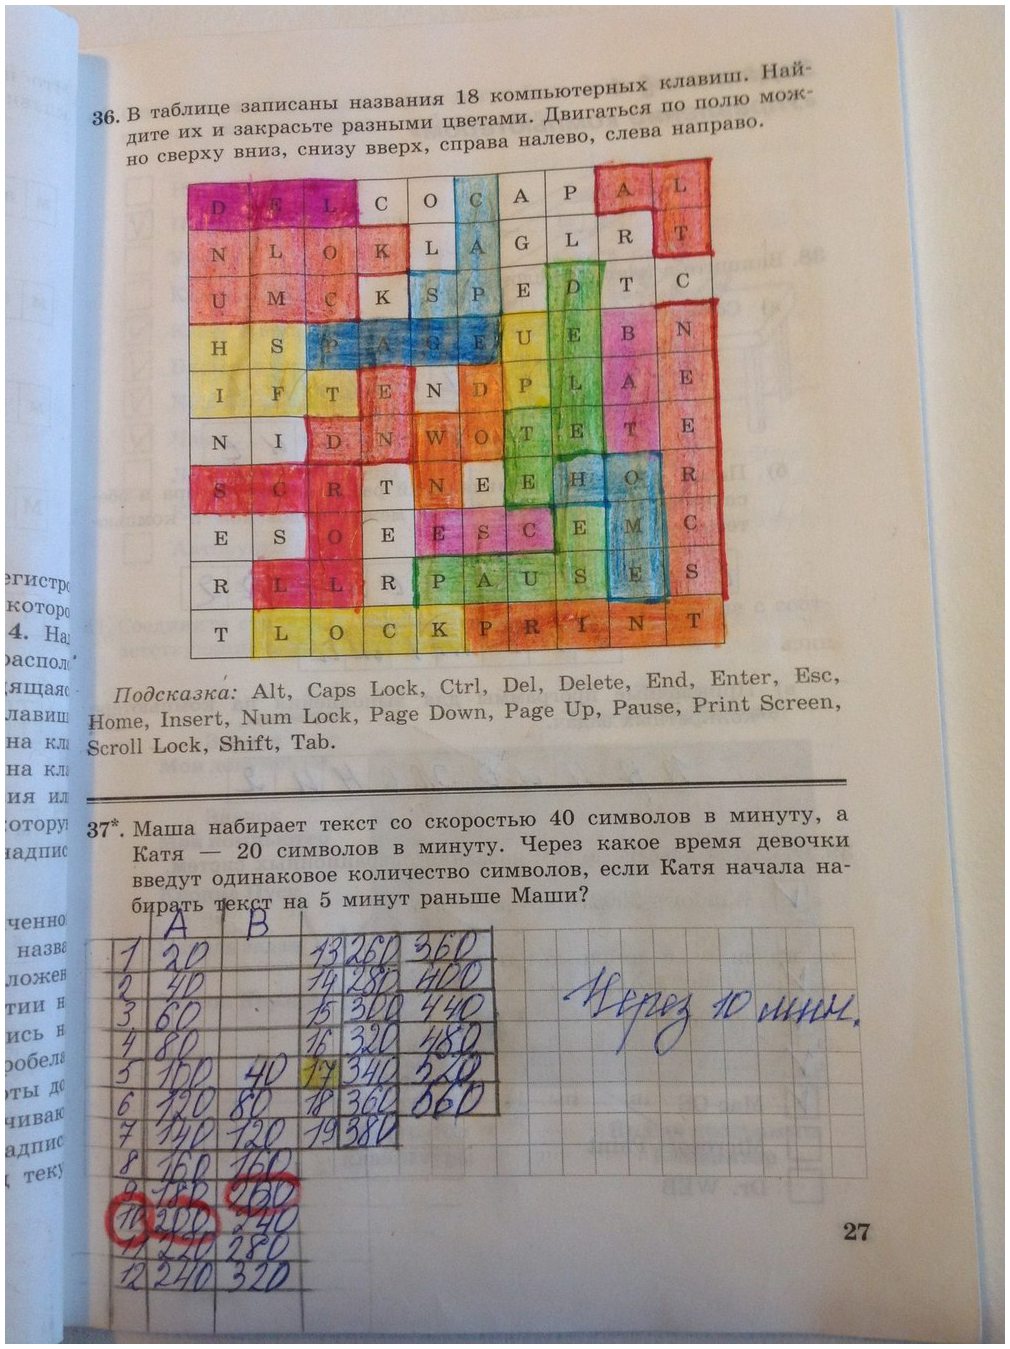 36. В таблице записаны названия 18 компьютерных клавиш. Най-
дите их и закрасьте разными цветами. Двигаться по полю мож-
но сверху вниз, снизу вверх, справа налево, слева направо.
D E L C O C A P A L
N L O K L A G L R T
U M C K S P E D T C
H S P A G E U E B N
I F T E N D P L A E
N I D N W O T E T E
S C R T N E E H O R
E S O E E S C E M C
R L L R P A U S E S
T L O C K P R I N T
Подсказка: Alt, Caps Lock, Ctrl, Del, Delete, End, Enter, Esc,
Home, Insert, Num Lock, Page Down, Page Up, Pause, Print Screen,
Scroll Lock, Shift, Tab.
37*. Маша набирает текст со скоростью 40 символов в минуту, а
Катя — 20 символов в минуту. Через какое время девочки
введут одинаковое количество символов, если Катя начала на-
бирать текст на 5 минут раньше Маши?
A B
1 20 13 260 360
2 40 14 280 400
3 60 15 300 440
4 80 16 320 480
5 100 40 17 340 520
6 120 80 18 360 560
7 140 120 19 380
8 160 160
9 180 200
10 200 240
11 220 280
12 240 320
Через 10 мин.
27
4. На
на кла
на кла